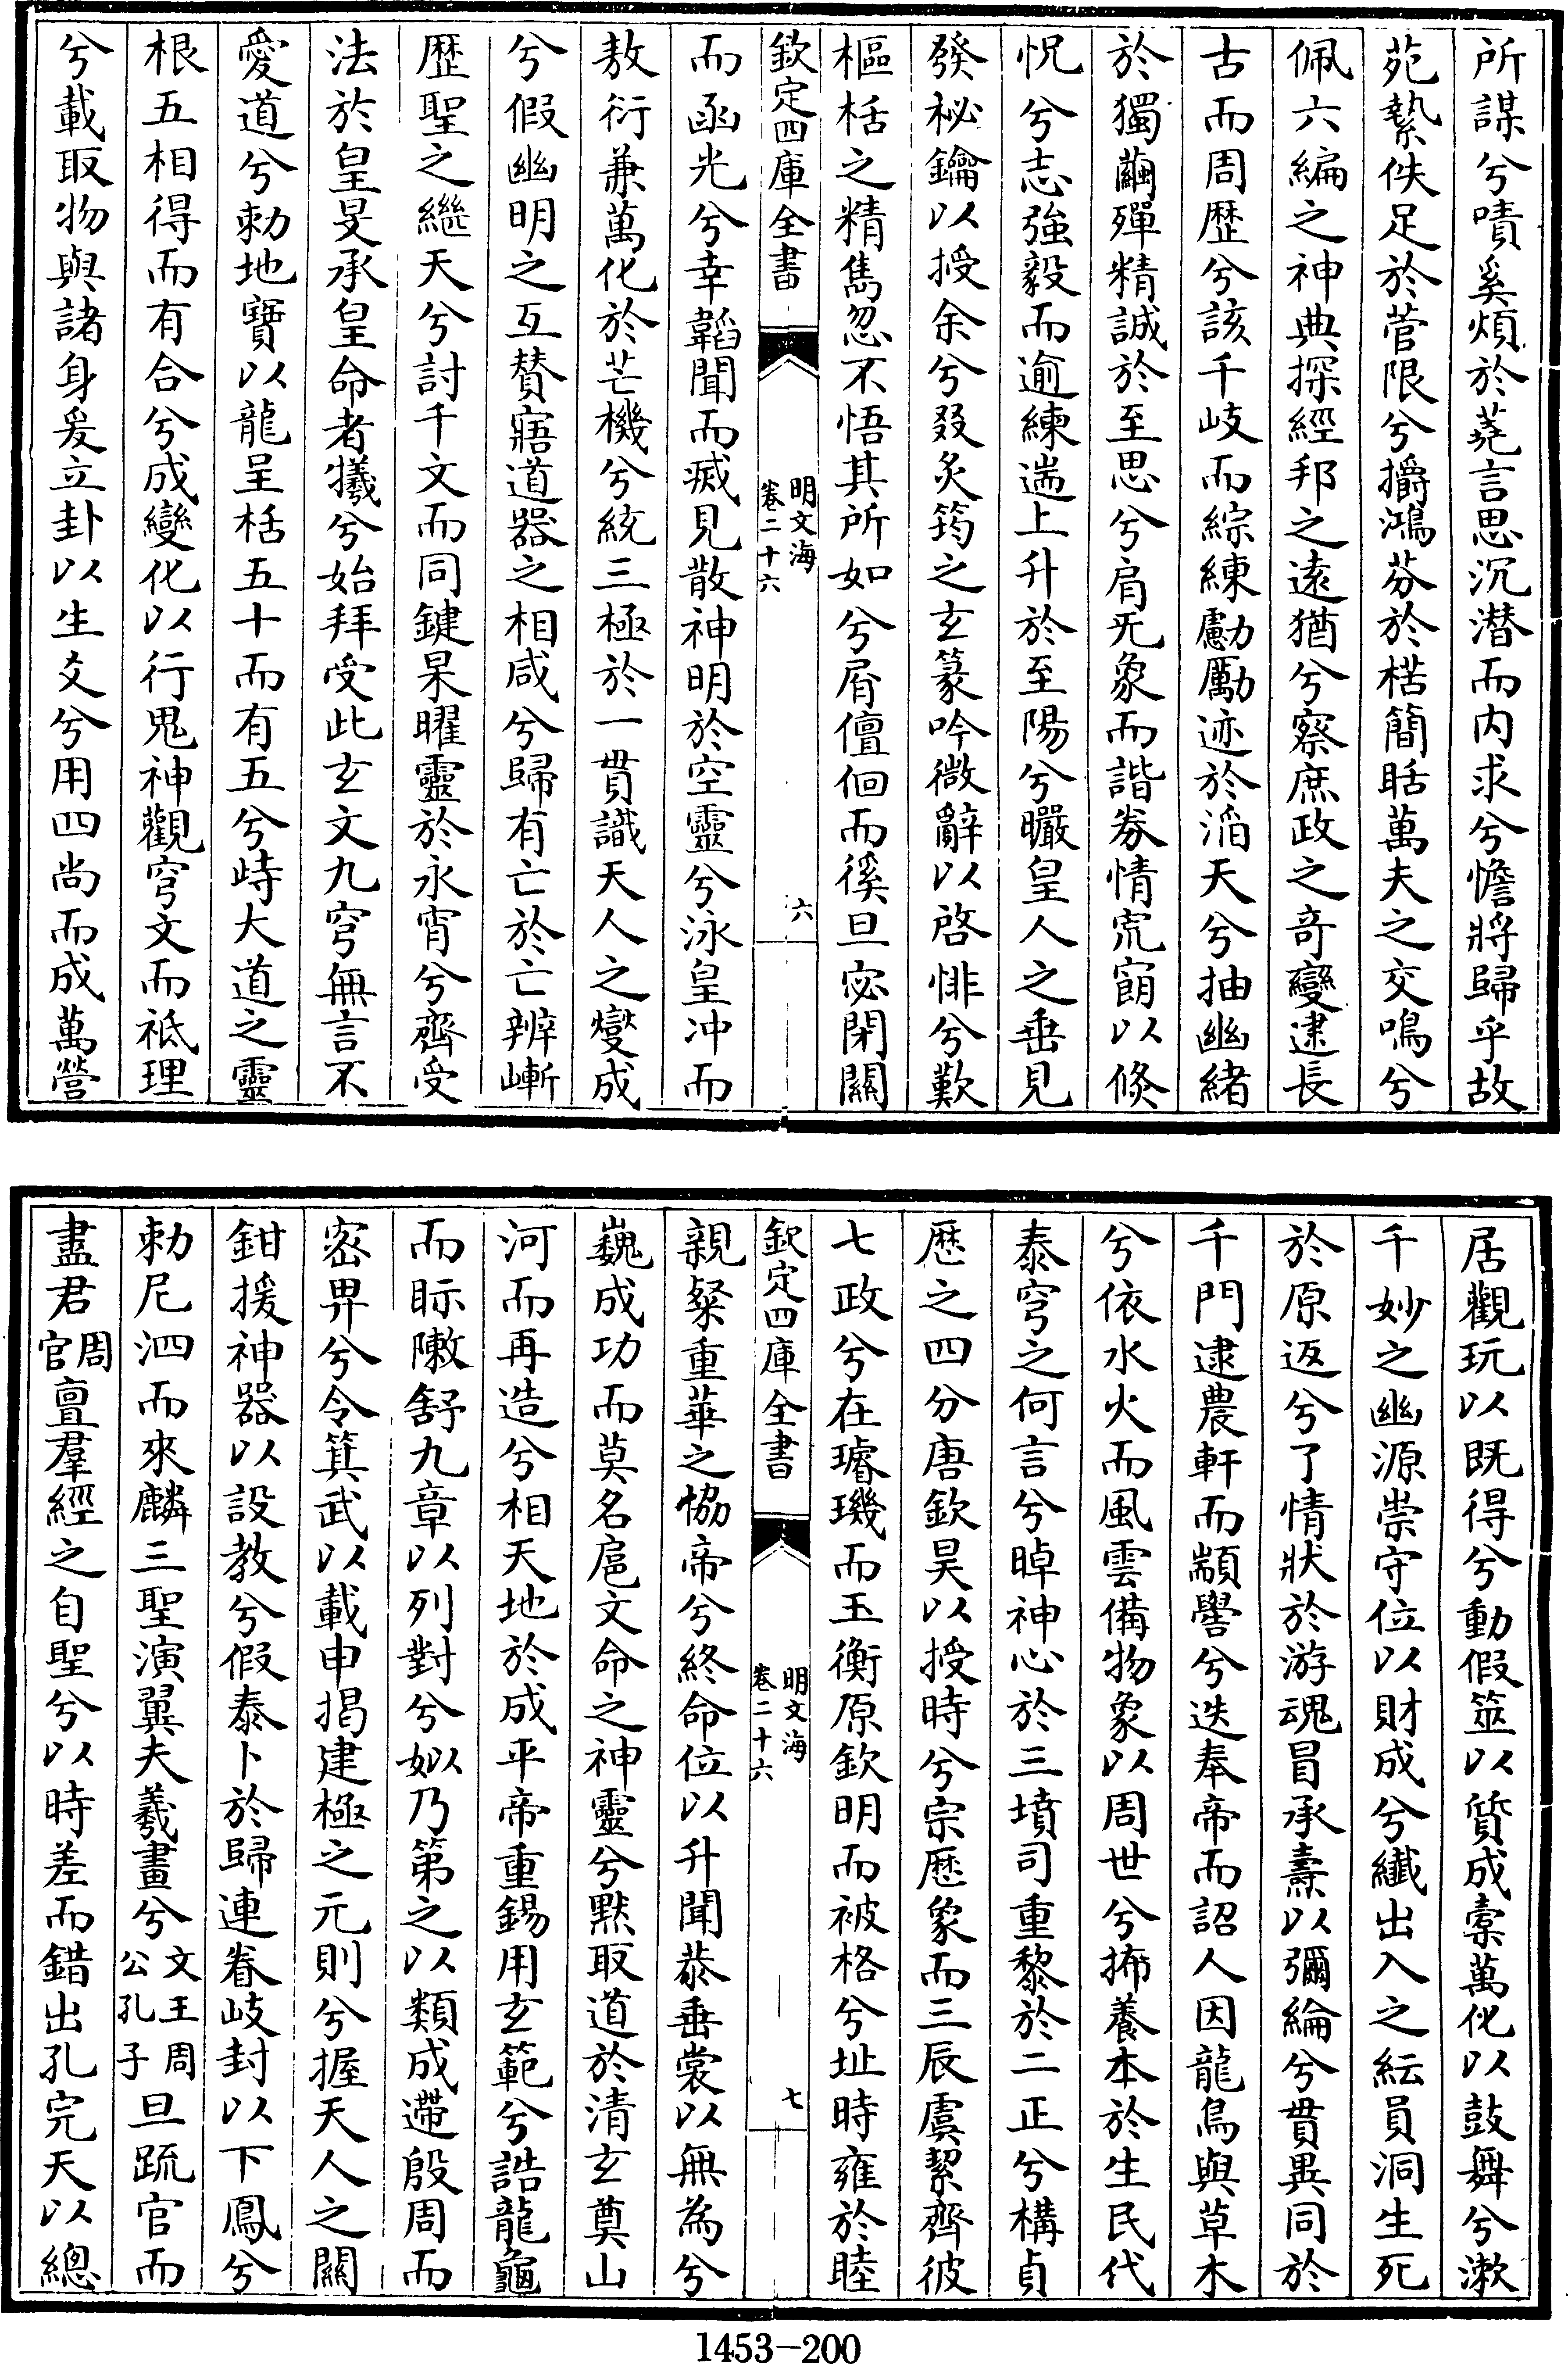 所謀兮嘖奚煩於蕘言思沉潜而内求兮憺將歸乎故
苑縶佚足於菅限兮攟鴻芬於楛簡聒萬夫之交鳴兮
佩六編之神典探經邦之遠猶兮察庶政之奇變逮長
古而周歴兮該千岐而綜練勴勵迹於滔天兮抽幽緒
於獨繭殫精誠於至思兮肩旡象而諧劵情㝁窅以倏
怳兮志強毅而逾練遄上升於至陽兮曮皇人之垂見
發秘鑰以授余兮叕炙筠之玄篆吟微辭以啓悱兮歎
樞栝之精雋忽不悟其所如兮屑儃佪而徯旦宓閉關
欽定四庫全書
明文海
卷二十六
六
而函光兮幸韜聞而㓕見散神明於空靈兮泳皇冲而
敖衍兼萬化於芒機兮統三極於一貫識天人之燮成
兮假幽明之互賛寤道器之相咸兮歸有亡於亡辨嶃
歴聖之繼天兮討千文而同鍵杲曜靈於永宵兮齊受
法於皇旻承皇命者犧兮始拜受此玄文九穹無言不
愛道兮勅地寶以龍呈栝五十而有五兮峙大道之靈
根五相得而有合兮成變化以行鬼神觀穹文而祗理
兮載取物與諸身爰立卦以生爻兮用四尚而成萬營
居觀玩以既得兮動假筮以質成橐萬化以鼓舞兮漱
千妙之幽源崇守位以財成兮纎出入之紜員洞生死
於原返兮了情狀於游魂冒承燾以彌綸兮貫異同於
千門逮農軒而顓嚳兮迭奉帝而詔人因龍鳥與草木
兮依水火而風雲備物象以周世兮㧊養本於生民代
泰穹之何言兮晫神心於三墳司重黎於二正兮構貞
歴之四分唐欽昊以授時兮宗歴象而三辰虞絜齊彼
七政兮在璿璣而玉衡原欽明而被格兮址時雍於睦
欽定四庫全書
明文海
卷二十六
七
親粲重華之恊帝兮終命位以升聞恭垂裳以無為兮
巍成功而莫名扈文命之神靈兮黙取道於清玄奠山
河而再造兮相天地於成平帝重錫用玄範兮誥龍龜
而眎陳敷舒九章以列對兮姒乃第之以類成遰殷周而
宻畀兮令箕武以載申揭建極之元則兮握天人之關
鉗援神器以設教兮假泰卜於歸連眷岐封以下鳳兮
勅尼泗而來麟三聖演翼夫羲畫兮文王周公孔子旦䟽官而
盡君周官亶羣經之自聖兮以時差而錯出孔完天以總
1453-200